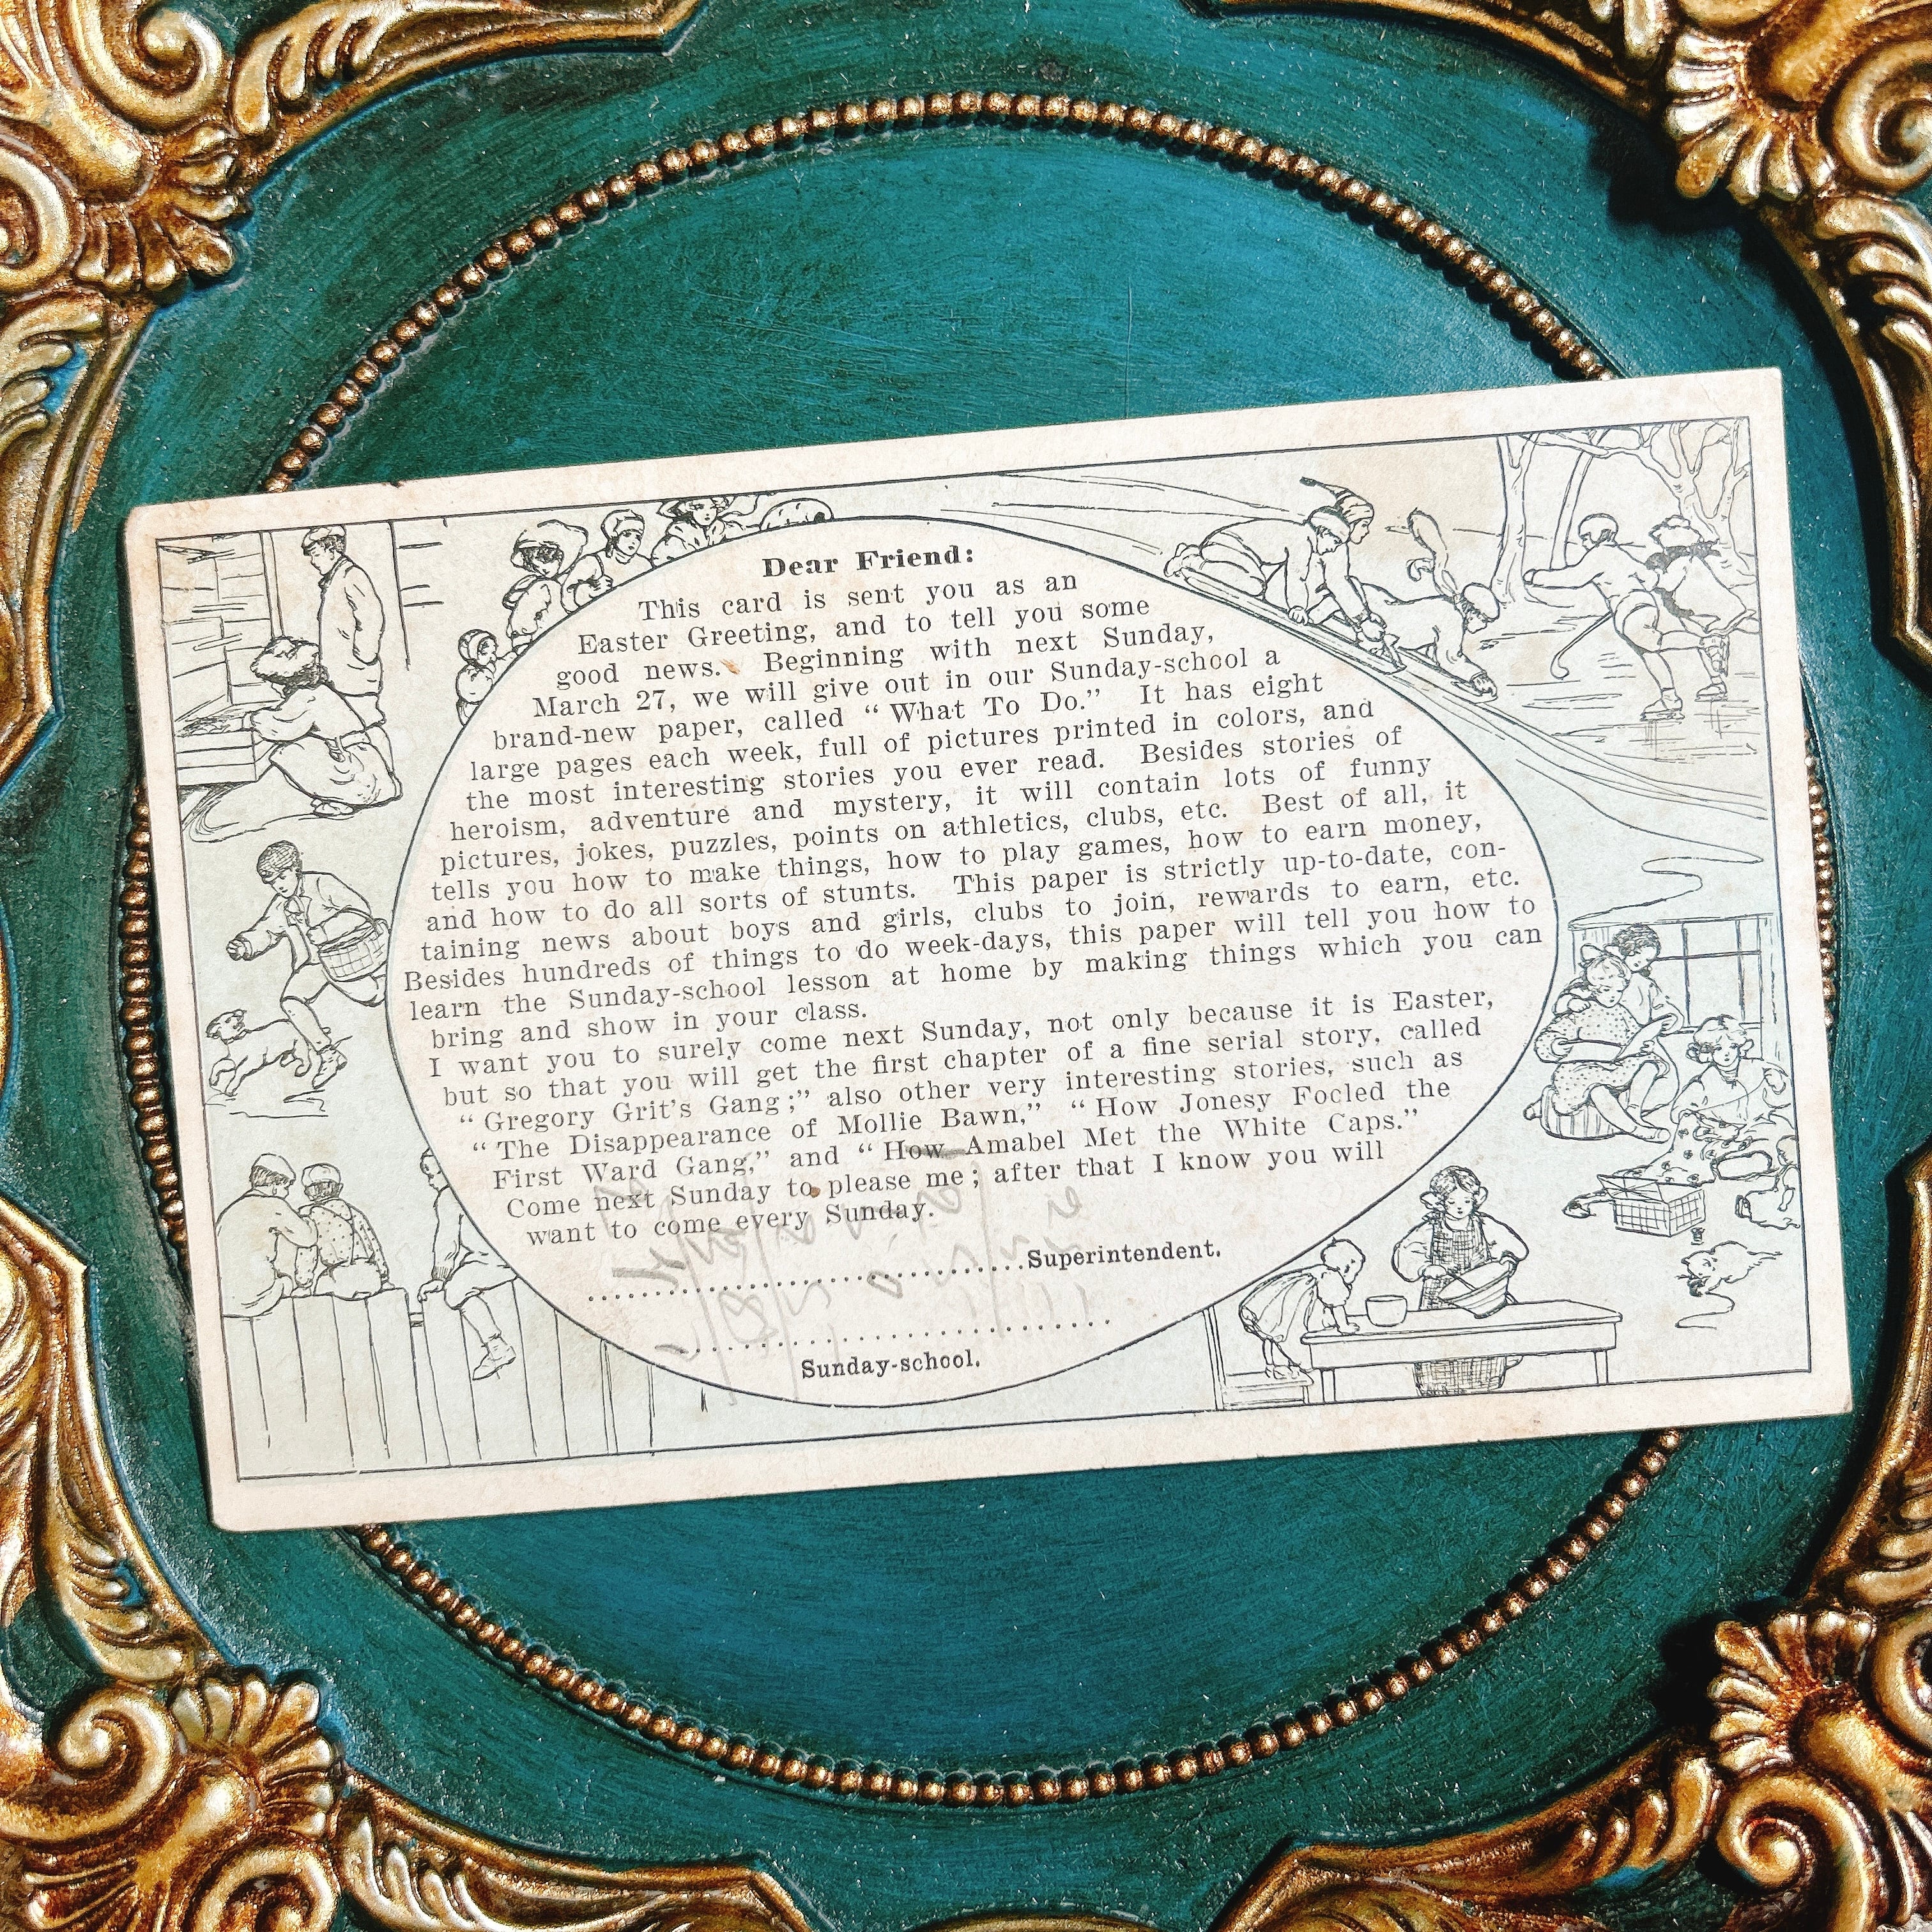 Dear Friend:
This card is sent you as an
Easter Greeting, and to tell you some
good news. Beginning with next Sunday,
March 27, we will give out in our Sunday-school a
brand-new paper, called “What To Do.” It has eight
large pages each week, full of pictures printed in colors, and
the most interesting stories you ever read. Besides stories of
heroism, adventure and mystery, it will contain lots of funny
pictures, jokes, puzzles, points on athletics, clubs, etc. Best of all, it
tells you how to make things, how to play games, how to earn money,
and how to do all sorts of stunts. This paper is strictly up-to-date, con-
taining news about boys and girls, clubs to join, rewards to earn, etc.
Besides hundreds of things to do week-days, this paper will tell you how to
learn the Sunday-school lesson at home by making things which you can
bring and show in your class.
I want you to surely come next Sunday, not only because it is Easter,
but so that you will get the first chapter of a fine serial story, called
“Gregory Grit's Gang;” also other very interesting stories, such as
“The Disappearance of Mollie Bawn,” “How Jonesy Focled the
First Ward Gang,” and “How Amabel Met the White Caps.”
Come next Sunday to please me; after that I know you will
want to come every Sunday.
..............................Superintendent.
..............................
Sunday-school.